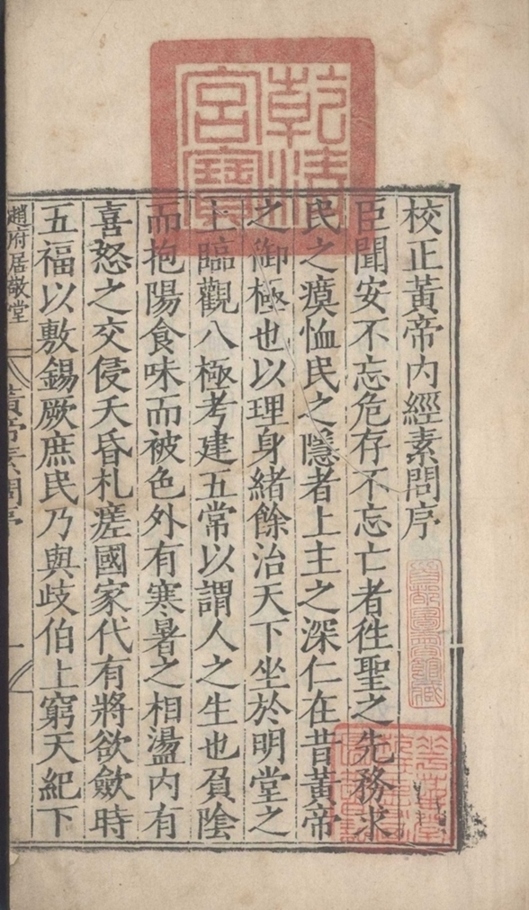 乾清宮寶
校正黃帝內經素問序
首都圖書館藏
臣聞安不忘危存不忘亡者徃聖之先務求
民之瘼恤民之隱者上主之深仁在昔黃帝
之御極也以理身緒餘治天下坐於明堂之
上臨觀八極考建五常以謂人之生也負陰
而抱陽食味而被色外有寒暑之相盪內有
喜怒之交侵夭昏札瘥國家代有將欲斂時
五福以敷錫厥庶民乃與歧伯上窮天紀下
趙府居敬堂
黃帝素問序
一